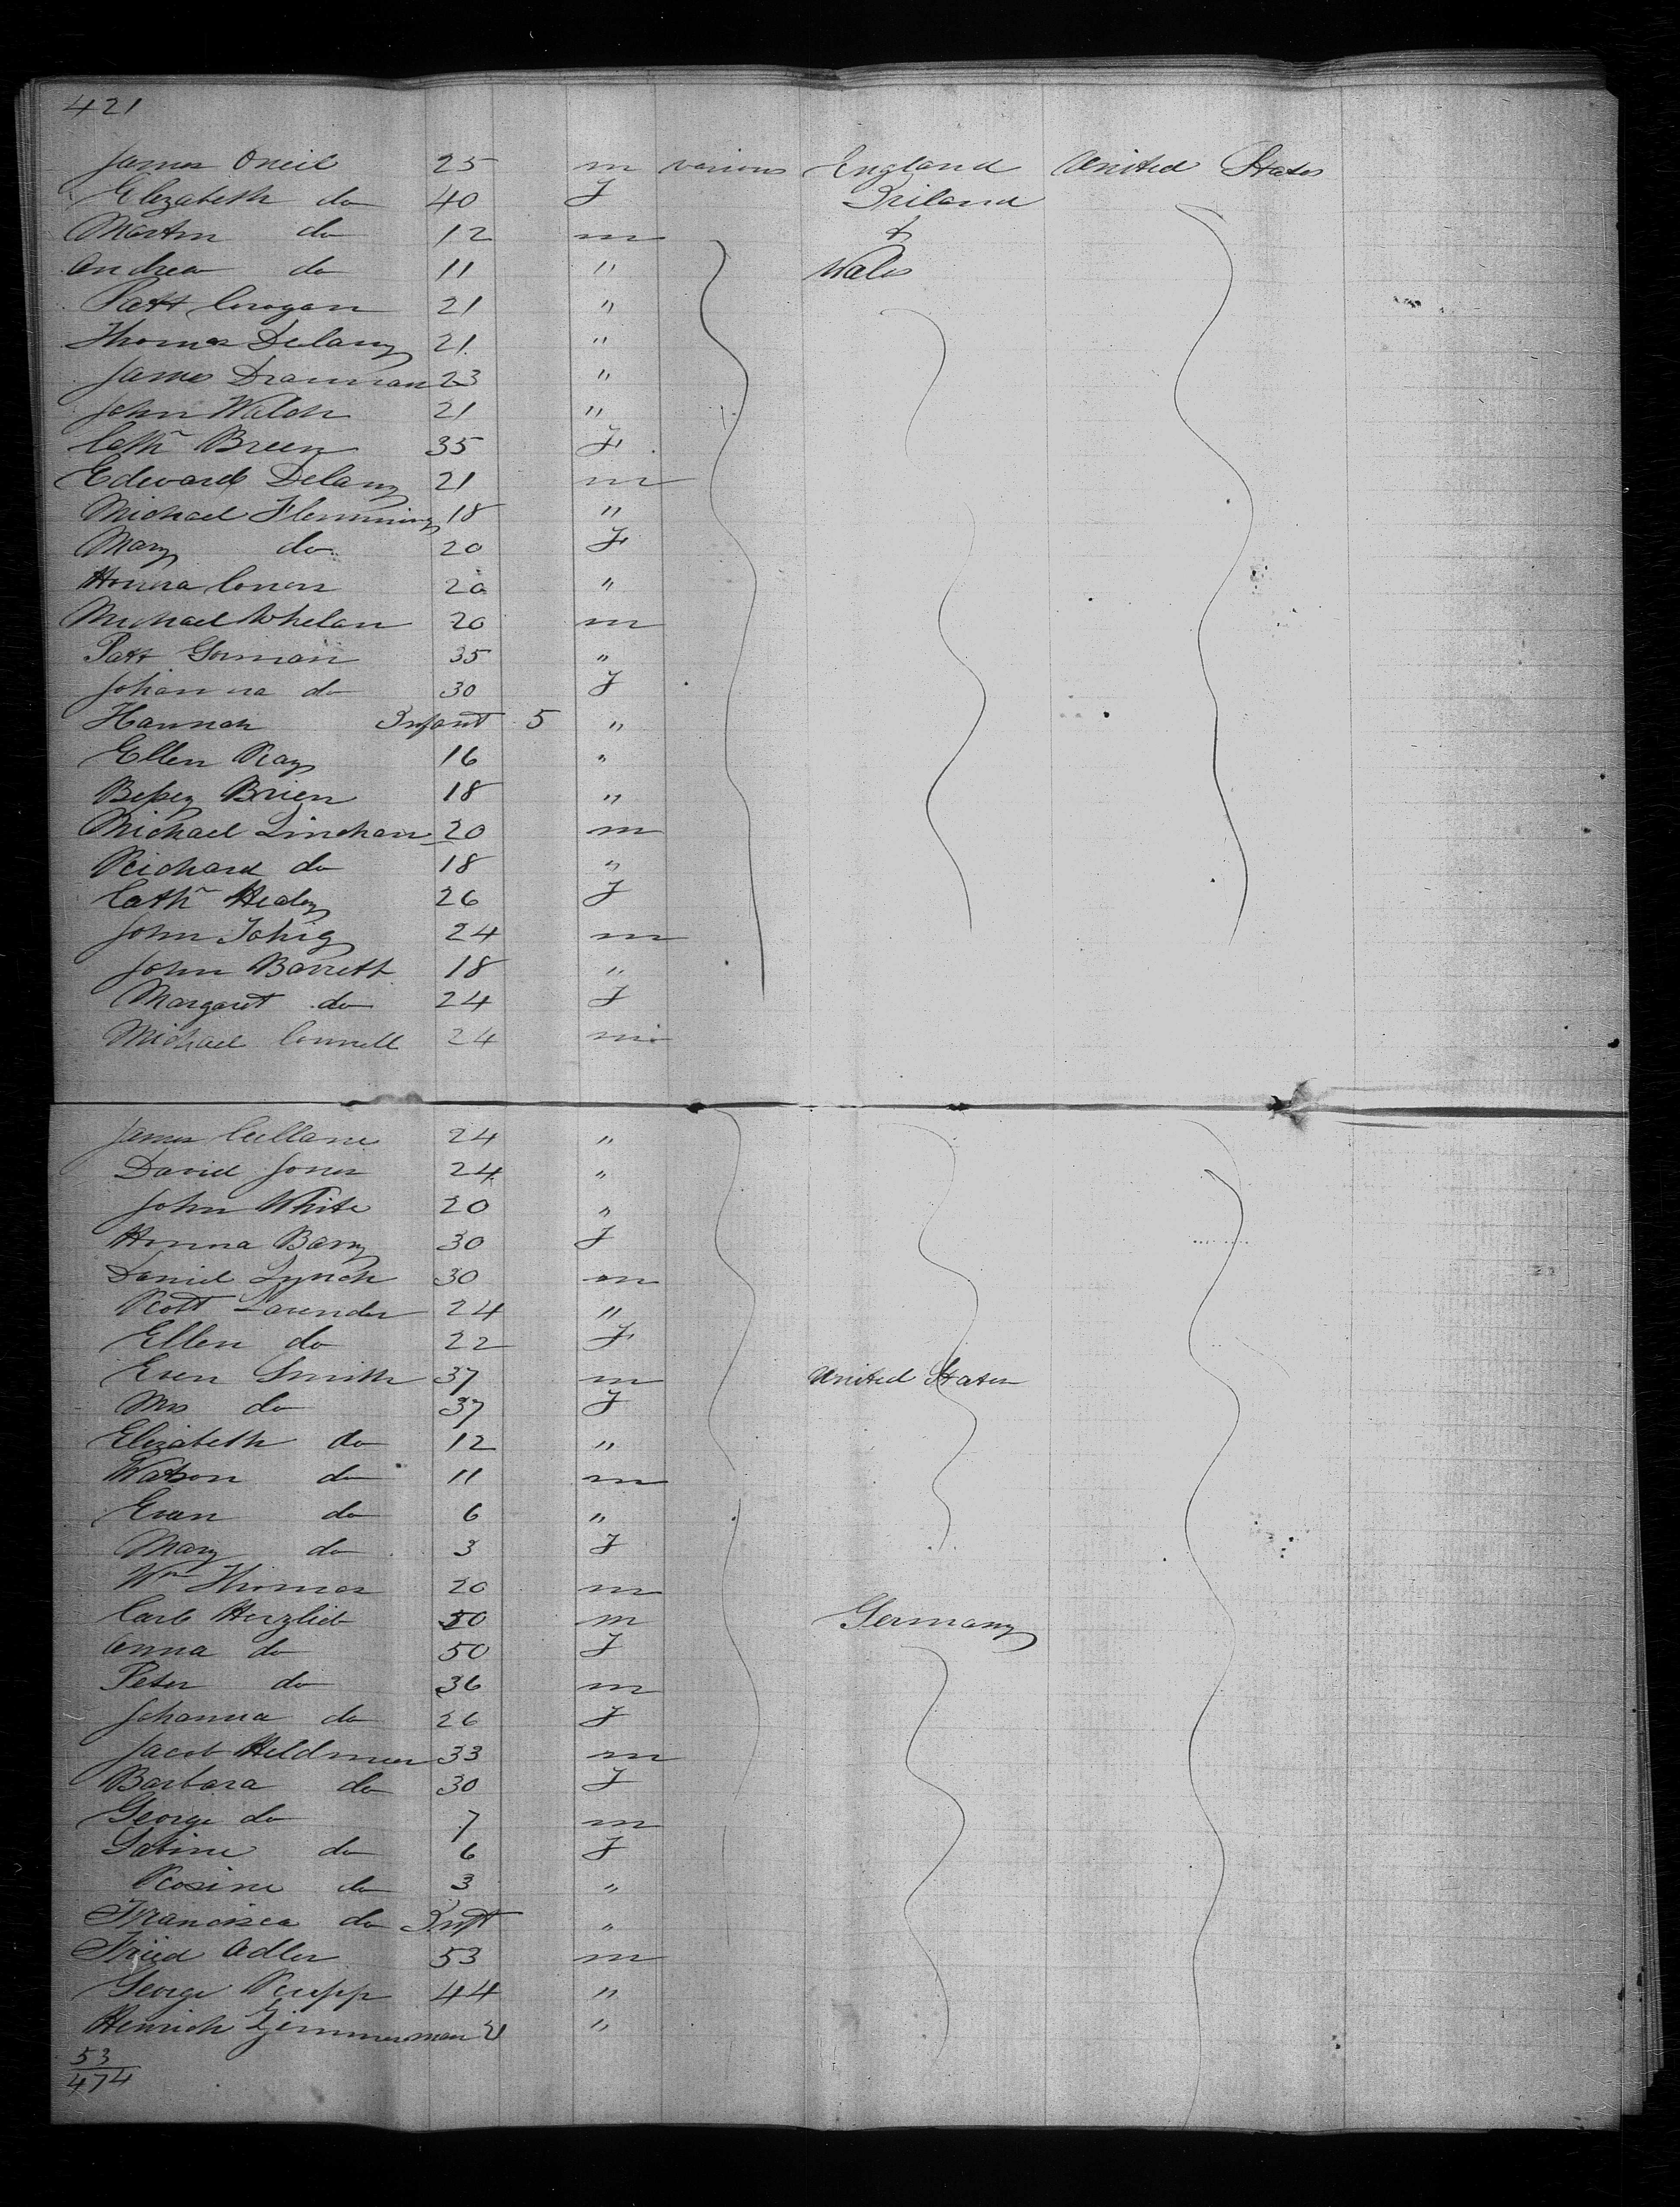 421
James Oneil 25 m various England United States
Elizabeth do 40 F Ireland
Martin do 12 m &
Andrew do 11 " Wales
Patt Crogan 21 "
Thomas Delany 21 "
James Drannan 23 "
John Walsh 21 "
Cathn Breen 35 F
Edward Delany 21 m
Michael Flemming 18 "
Mary do 20 F
Honora Conors 20 "
Michael Whelan 20 m
Patt Gorman 35 "
Johanna do 30 F
Hannah Infant 5 "
Ellen Ray 16 "
Bessy Brien 18 "
Michael Linehan 20 m
Richard do 18 "
Cathn Healy 26 F
John Fahig 24 m
John Barrett 18 "
Margaret do 24 F
Michael Connell 24 m
James Cullane 24 "
David Jones 24 "
John White 20 "
Honna Barry 30 F
Daniel Lynch 30 m
Scott Lavender 24 "
Ellen do 22 F
Even Smith 37 m United States
Mrs do 37 F
Elizabeth do 12 "
Watson do 11 m
Evan do 6 "
Mary do 3 F
Wm Thomas 20 m
Carl Herzlieb 50 m Germany
Anna do 50 F
Peter do 36 m
Johanna do 26 F
Jacob 33 m
Barbara do 30 F
George do 7 m
Sabine do 6 F
Rosine do 3 "
Francisca do Inft "
Fried Adler 53 m
George Rupp 44 "
Henrich Zimmerman 21 "
53
474